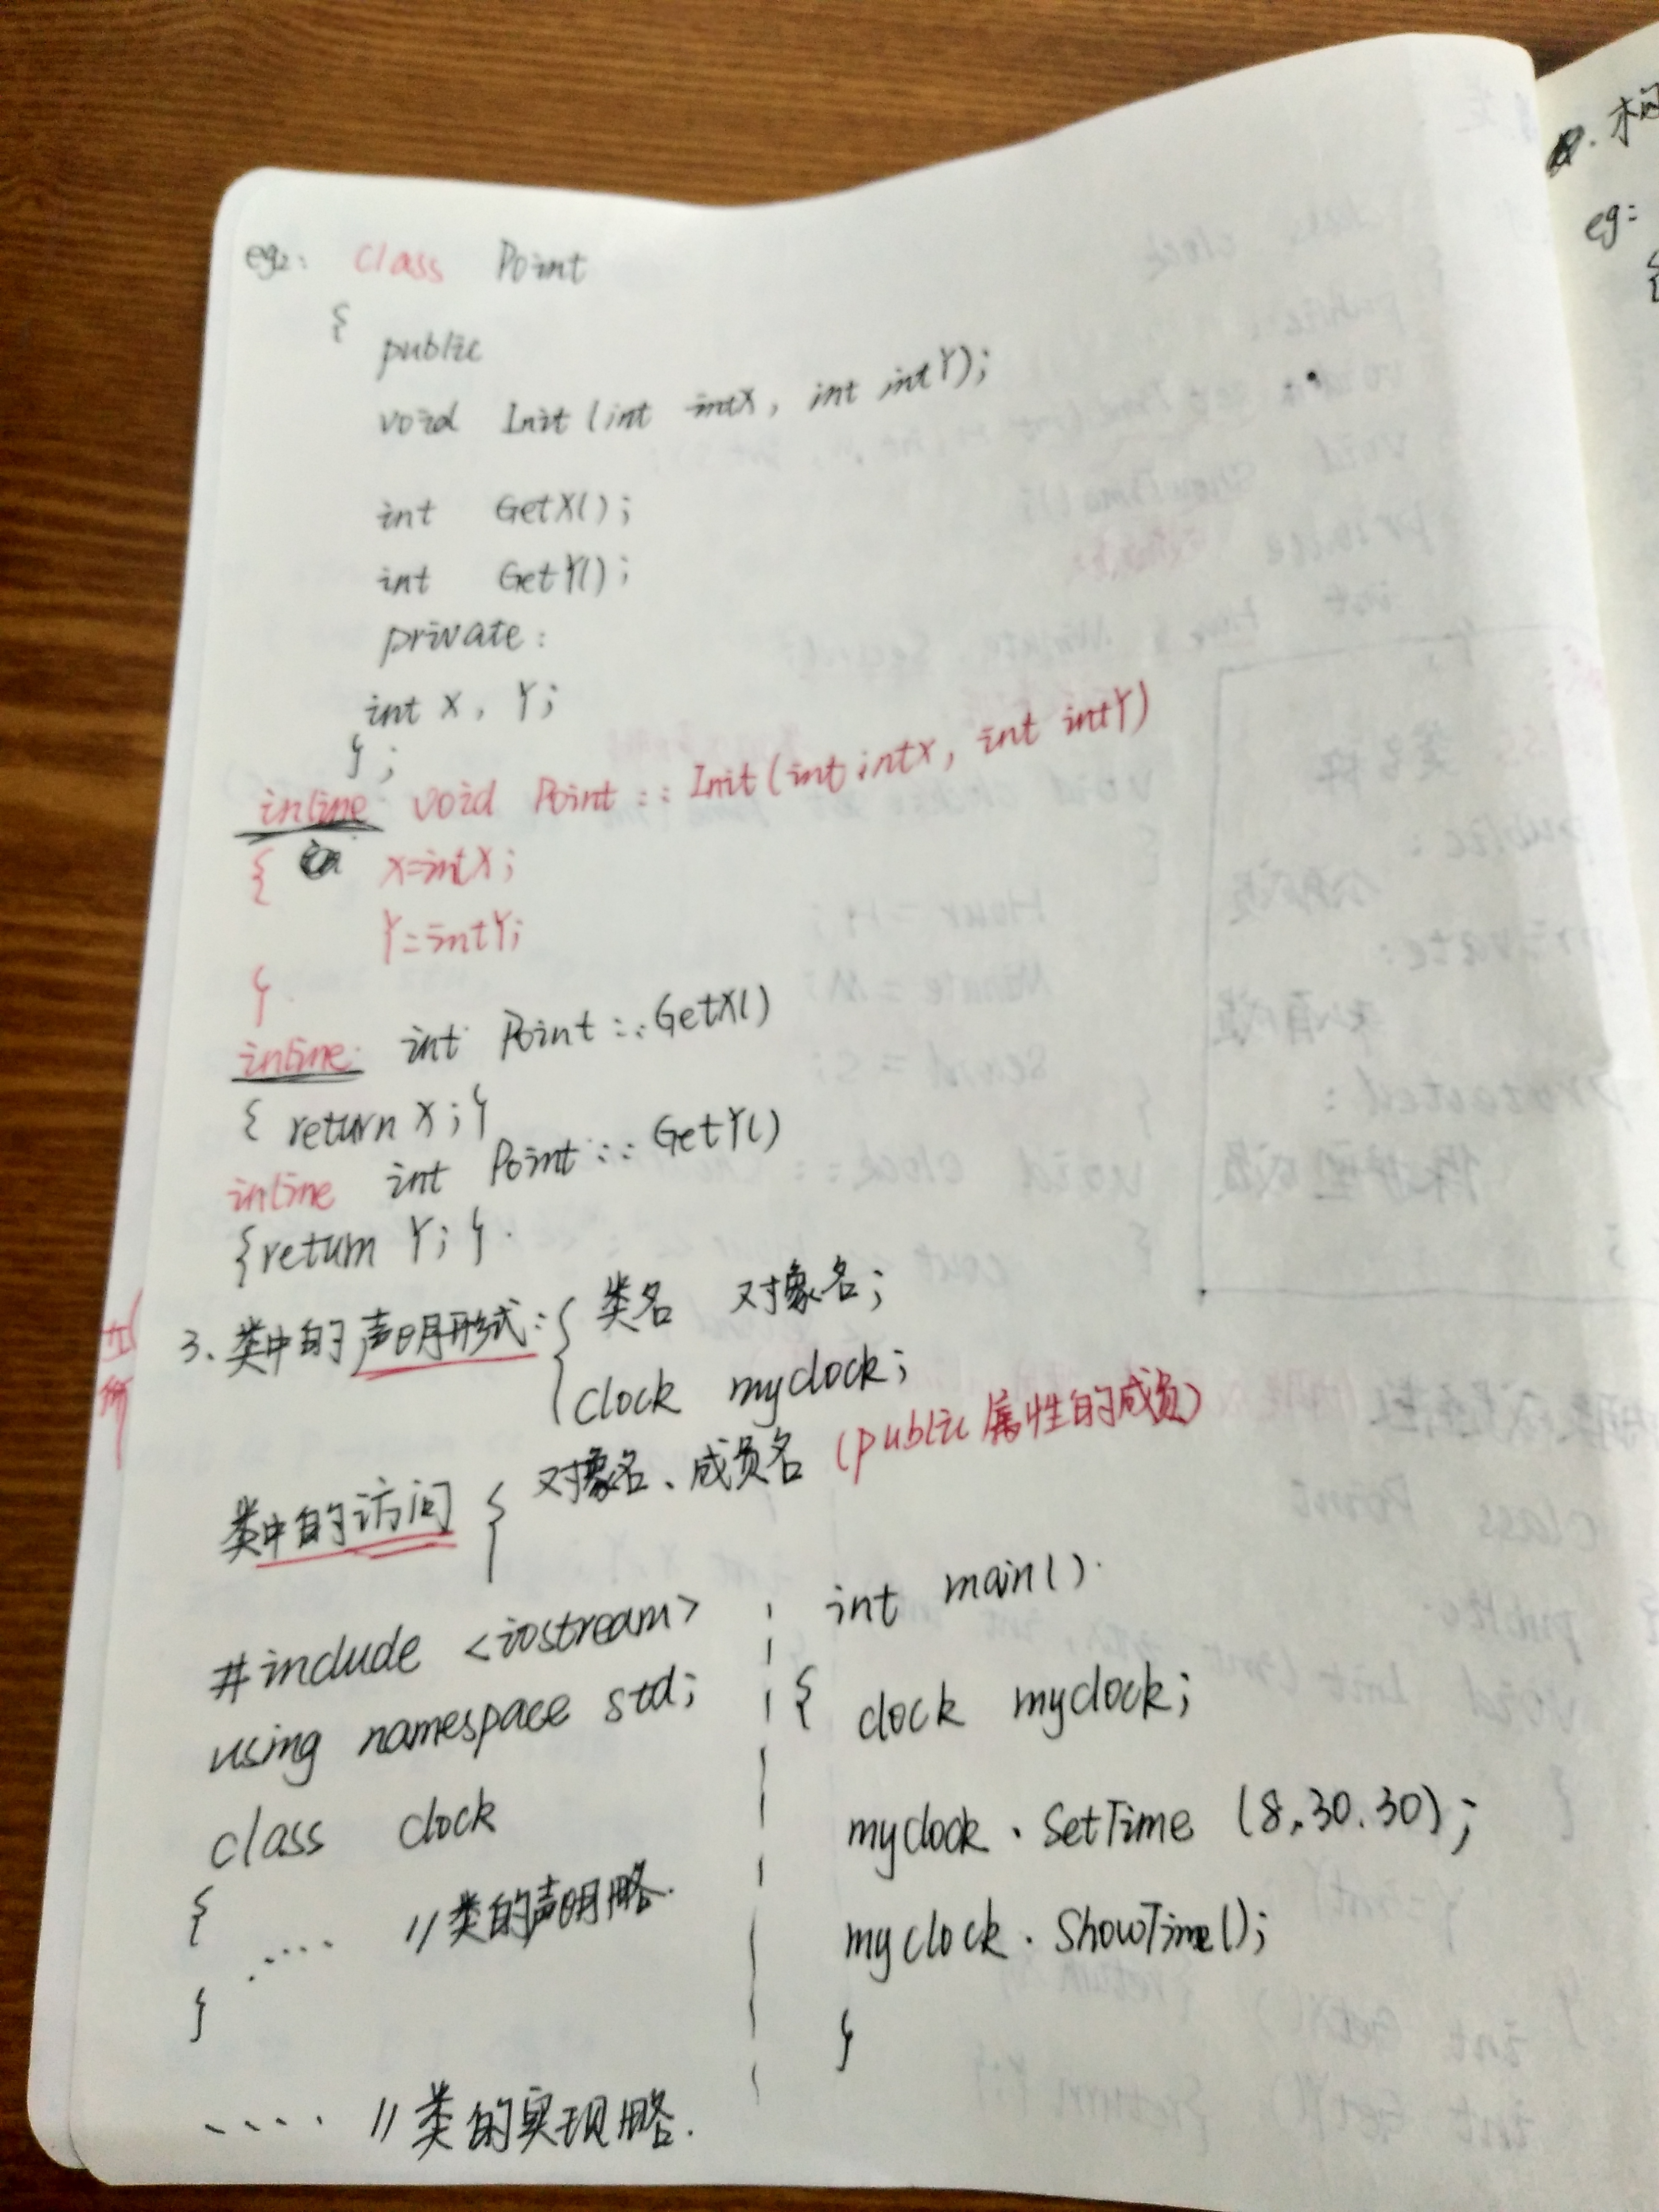 eg2: class Point
{
public
void Init (int intX, int intY);
int GetX();
int GetY();
private:
int X, Y;
};
inline void Point :: Init (int intX, int intY)
{ X=intX;
Y=intY;
}
inline int Point :: GetX()
{ return X; }
inline int Point :: GetY()
{return Y; }
3、类中的声明形式: { 类名 对象名;
clock myclock;
类中的访问 { 对象名、成员名 (public 属性的成员)
#include <iostream>
using namespace std;
class clock
{
.... //类的声明略.
}
.... //类的实现略.
int main()
{ clock myclock;
myclock . SetTime (8,30.30);
myclock . ShowTime();
}
eg: